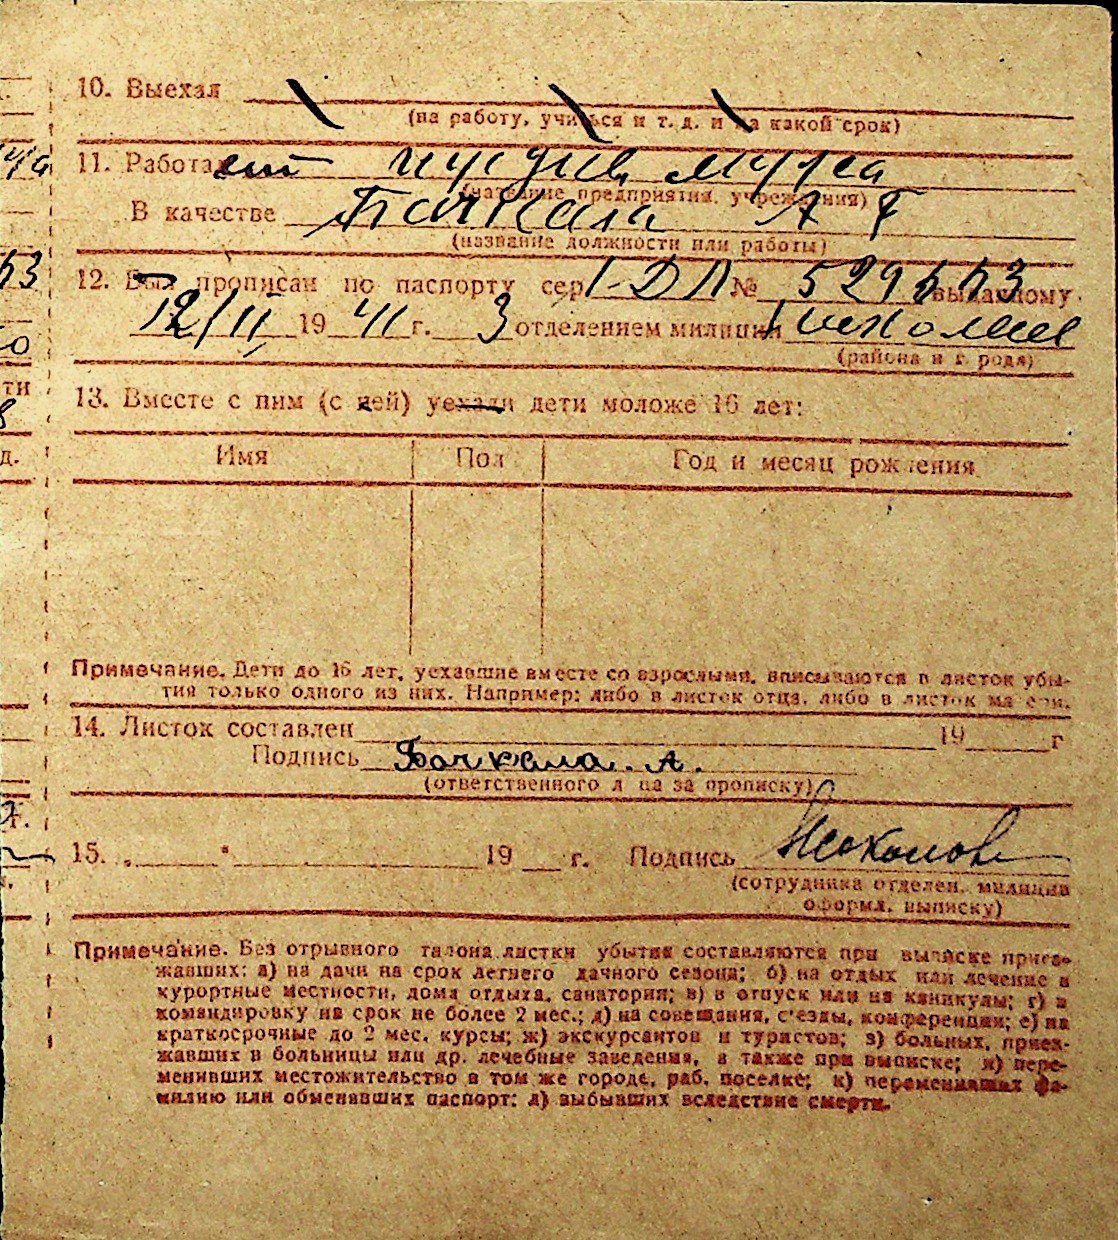 10. Выехал
(на работу, учиться и т. д. и на какой срок)
11. Работает иждив мужа
(название предприятия, учреждения)
В качестве Бачкала А Г
(название должности или работы)
12. Был прописан по паспорту сер I-ДЛ № выданному
12/II 1941 г. 3 отделением милиции
(района и города)
13. Вместе с ним (с ней) уехали дети моложе 16 лет:
Имя Пол Год и месяц рождения
Примечание. Дети до 16 лет, уехавшие вместе со взрослыми, вписываются в листок убы-
тия только одного из них. Например: либо в листок отца, либо в листок матери.
14. Листок составлен 19 г
Подпись Бачкала. А.
(ответственного лица за прописку)
15. „ " 19 г. Подпись
(сотрудника отделен. милиции
оформл. выписку)
Примечание. Без отрывного талона листки убытия составляются при выписке приез-
жавших: а) на дачи на срок летнего дачного сезона; б) на отдых или лечение в
курортные местности, дома отдыха, санатории; в) в отпуск или на каникулы; г) в
командировку на срок не более 2 мес.; д) на совещания, с'езды, конференции; е) на
краткосрочные до 2 мес. курсы; ж) экскурсантов и туристов; з) больных, приез-
жавших в больницы или др. лечебные заведения, а также при выписке; и) пере-
менивших местожительство в том же городе, раб. поселке; к) переменивших фа-
милию или обменявших паспорт; л) выбывших вследствие смерти.